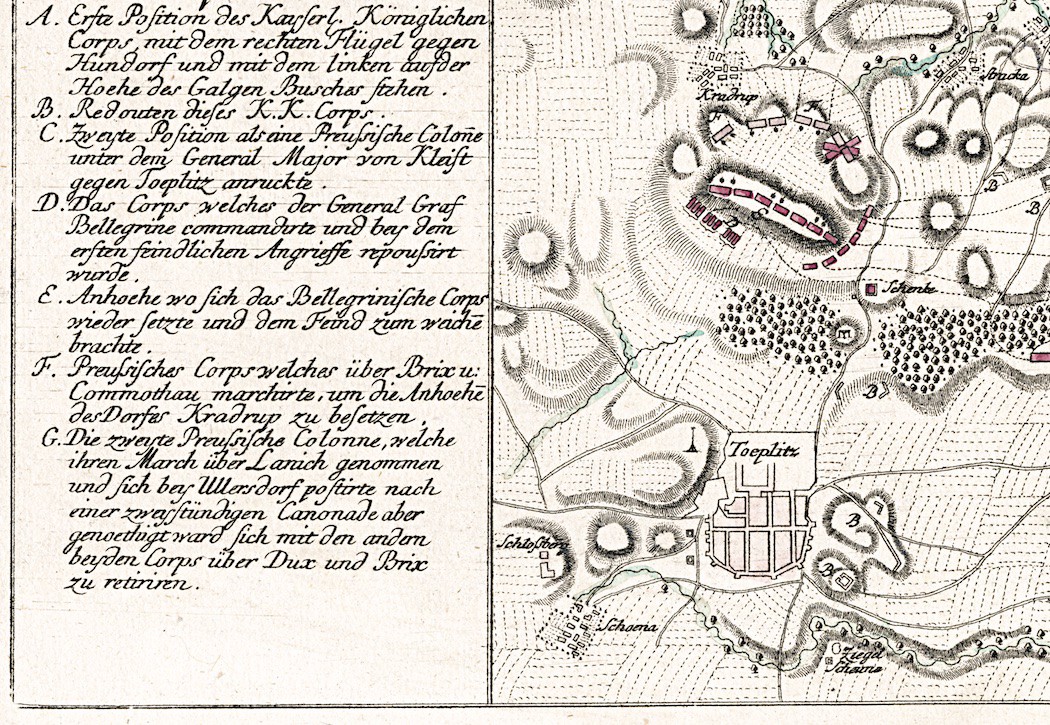 A. Erste Position des Kayserl. Königlichen
Corps, mit dem rechten Flügel gegen
Hundorf und mit dem linken auf der
Hoehe des Galgen Busches stehen.
B. Redouten dieses K. K. Corps.
C. Zweyte Position als eine Preussische Colon̄e
unter dem General Major von Kleist
gegen Toeplitz anruckte.
D. Das Corps welches der General Graf
Bellegrine commandirte und bey dem
ersten feindlichen Angrieffe repoussirt
wurde.
E. Anhoehe wo sich das Bellegrinische Corps
wieder setzte und dem Feind zum weichē
brachte.
F. Preussisches Corps welches über Brix u:
Commothau marchirte, um die Anhoehē
des Dorfes Kradrup zu besetzen.
G. Die zweyte Preussische Colonne, welche
ihren March über Lanich genommen
und sich bey Ullersdorf postirte nach
einer zweystündigen Canonade aber
genoethigt ward sich mit den andern
beyden Corps über Dux und Brix
zu retiriren.
Kradrup
Strucka
B
B
D
E
Schenke
B
Toeplitz
B
B
Schlosberg
Schoena
Ziegel
Scheune